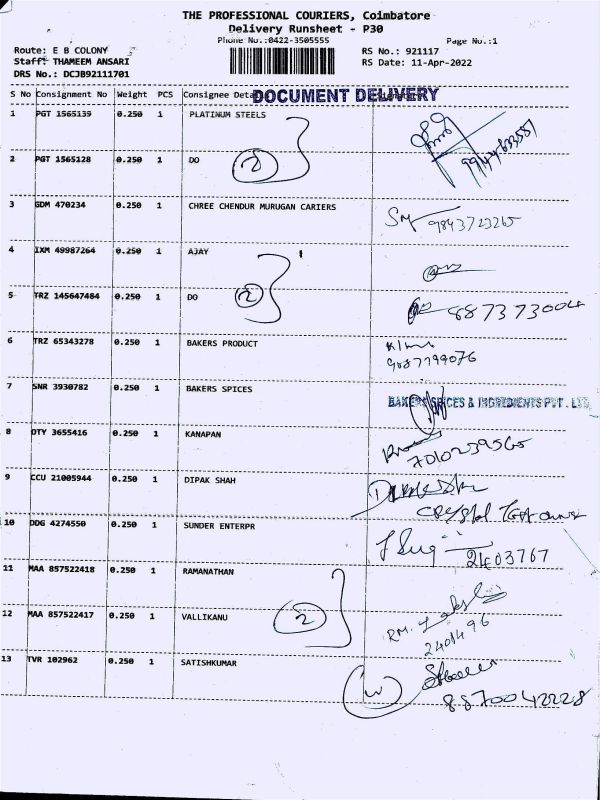 THE PROFESSIONAL COURIERS, Coimbatore
Delivery Runsheet - P30
Phone No.:0422-3505555
Page No.:1
Route: E B COLONY
RS No.: 921117
Staff: THAMEEM ANSARI
RS Date: 11-Apr-2022
DRS No.: DCJB92111701
S No Consignment No Weight PCS Consignee
DOCUMENT DELIVERY
1 PGT 1565139 0.250 1 PLATINUM STEELS
2 PGT 1565128 0.250 1 DO 2
3 GDM 470234 0.250 1 CHREE CHENDUR MURUGAN CARIERS
9843723265
4 IXM 49987264 0.250 1 AJAY
5 TRZ 145647484 0.250 1 DO 2
6 TRZ 65343278 0.250 1 BAKERS PRODUCT
9087799076
7 SNR 3930782 0.250 1 BAKERS SPICES
BAKERS SPICES & INGREDIENTS PVT. LTD
8 OTY 3655416 0.250 1 KANAPAN
7010239565
9 CCU 21005944 0.250 1 DIPAK SHAH
10 DDG 4274550 0.250 1 SUNDER ENTERPR
2403767
11 MAA 857522418 0.250 1 RAMANATHAN
12 MAA 857522417 0.250 1 VALLIKANU 2
RM.
2401496
13 TVR 102962 0.250 1 SATISHKUMAR
W
8870042228